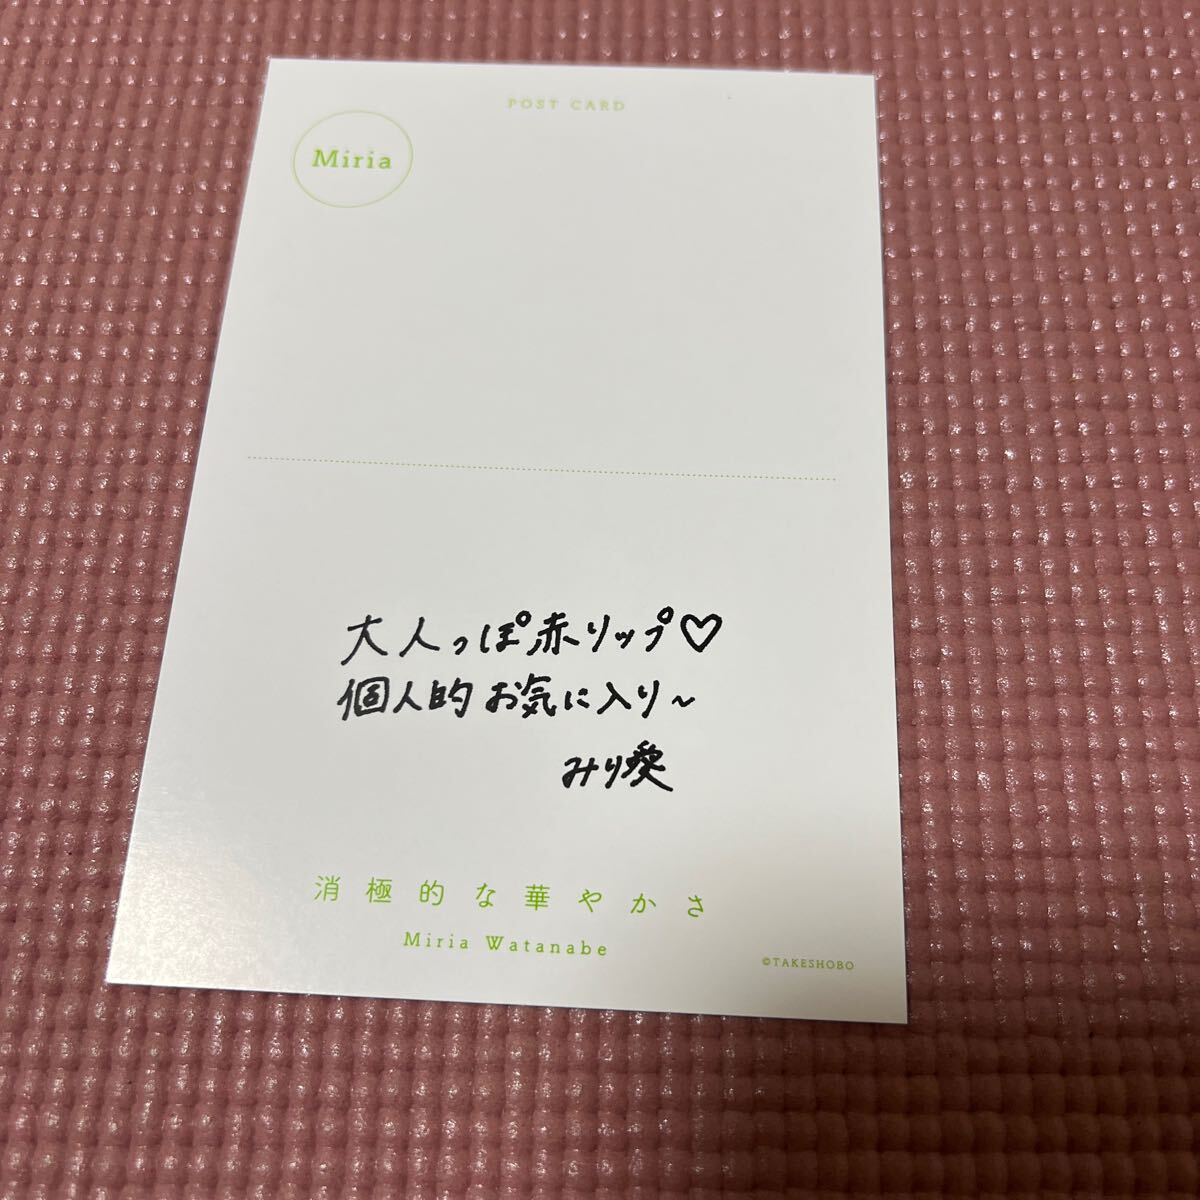 POST CARD
Miria
大人っぽ赤リップ♡
個人的お気に入り〜
みり愛
消極的な華やかさ
Miria Watanabe
©TAKESHOBO